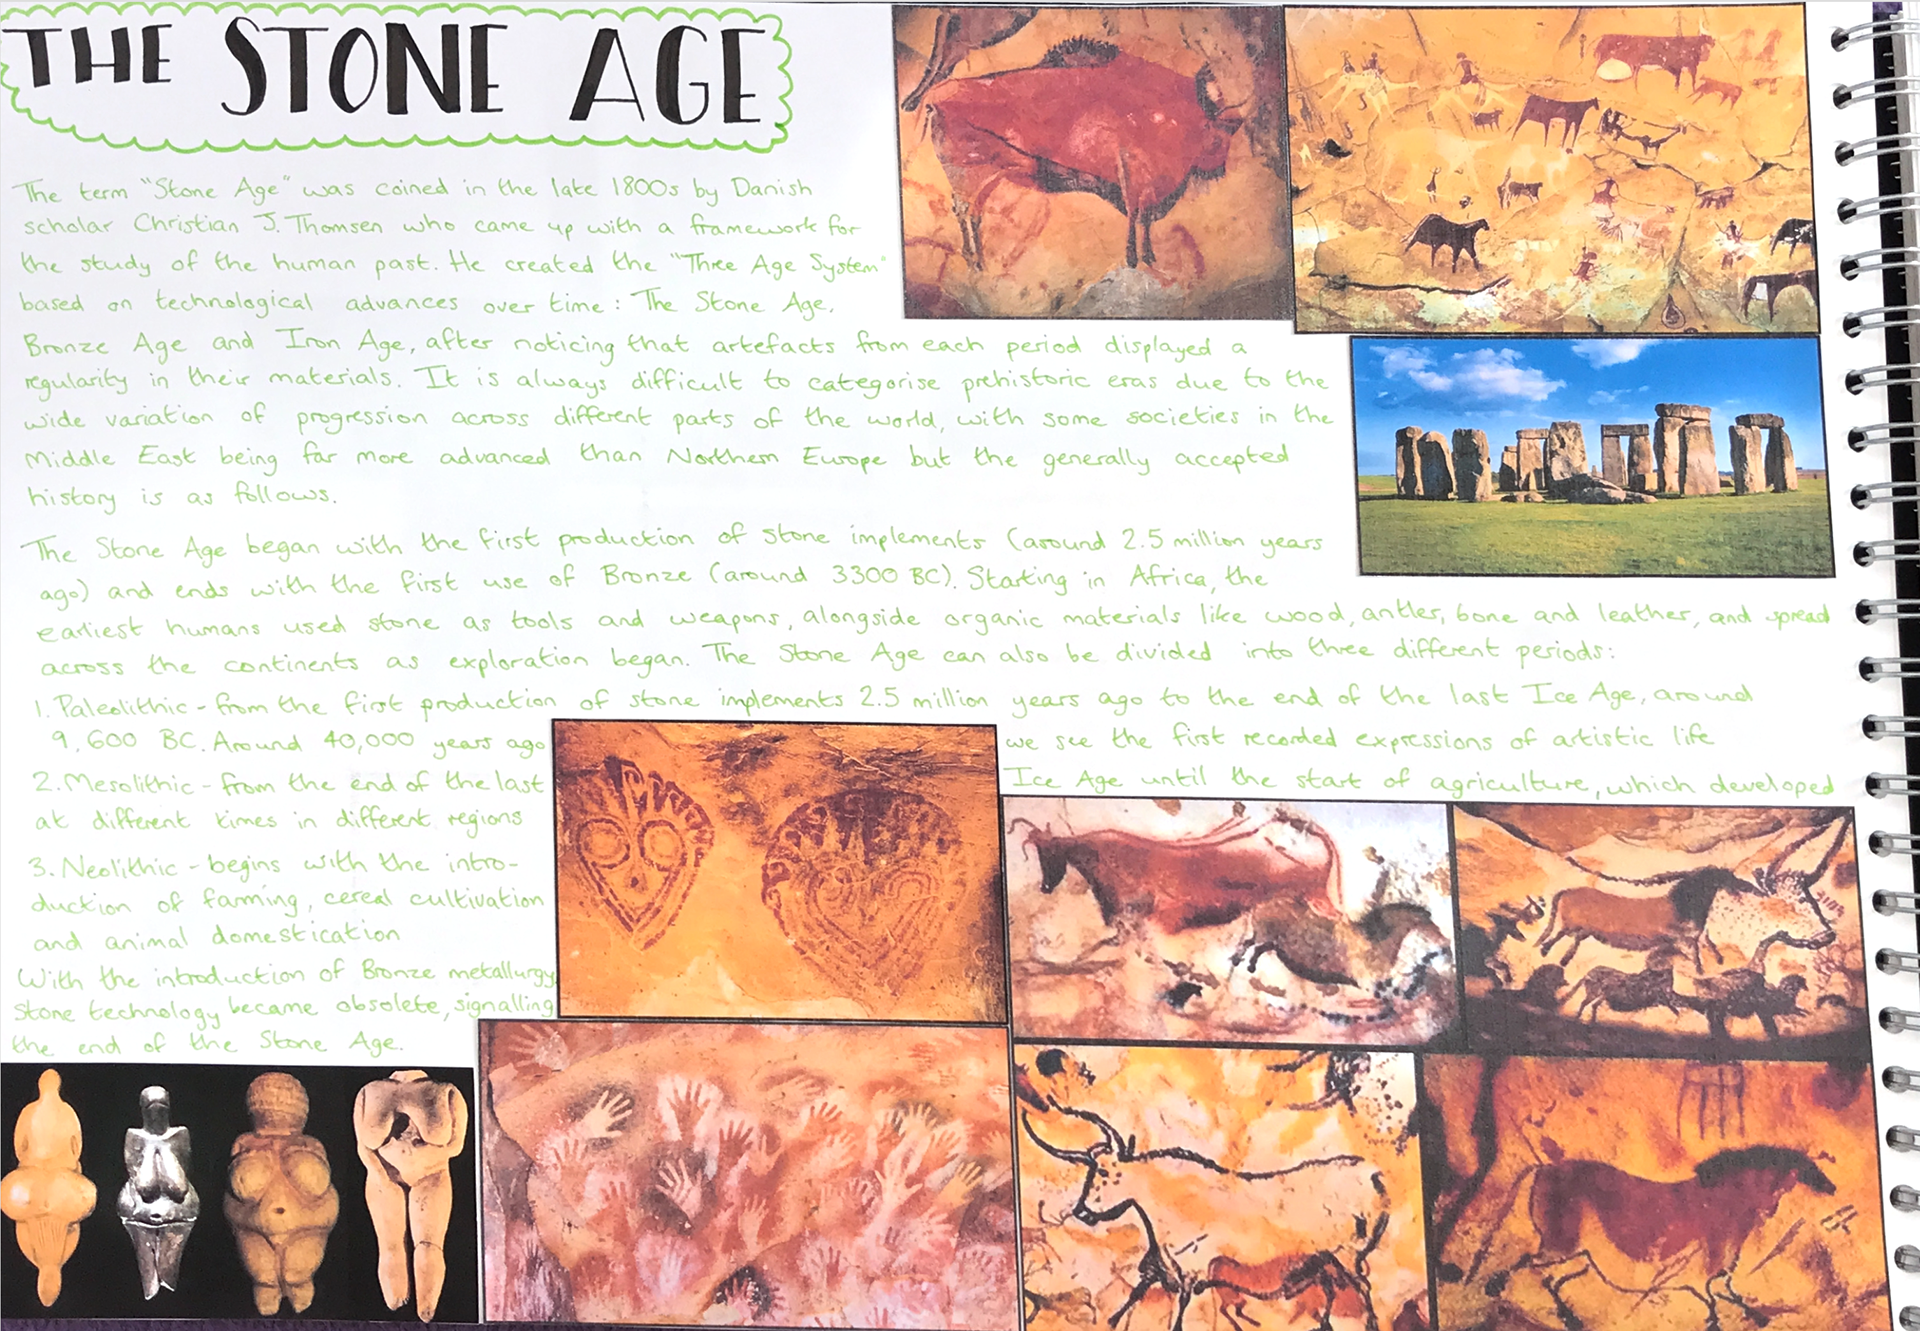 THE STONE AGE
The term "Stone Age" was coined in the late 1800s by Danish
scholar Christian J. Thomsen who came up with a framework for
the study of the human past. He created the "Three Age System"
based on technological advances over time: The Stone Age,
Bronze Age and Iron Age, after noticing that artefacts from each period displayed a
regularity in their materials. It is always difficult to categorise prehistoric eras due to the
wide variation of progression across different parts of the world, with some societies in the
Middle East being far more advanced than Northern Europe but the generally accepted
history is as follows.
The Stone Age began with the first production of stone implements (around 2.5 million years
ago) and ends with the first use of Bronze (around 3300 BC). Starting in Africa, the
earliest humans used stone as tools and weapons, alongside organic materials like wood, antler, bone and leather, and spread
across the continents as exploration began. The Stone Age can also be divided into three different periods:
1. Paleolithic - from the first production of stone implements 2.5 million years ago to the end of the last Ice Age, around
9,600 BC. Around 40,000 years ago we see the first recorded expressions of artistic life
2. Mesolithic - from the end of the last Ice Age until the start of agriculture, which developed
at different times in different regions
3. Neolithic - begins with the intro-
duction of farming, cereal cultivation
and animal domestication
With the introduction of Bronze metallurgy
stone technology became obsolete, signalling
the end of the Stone Age.